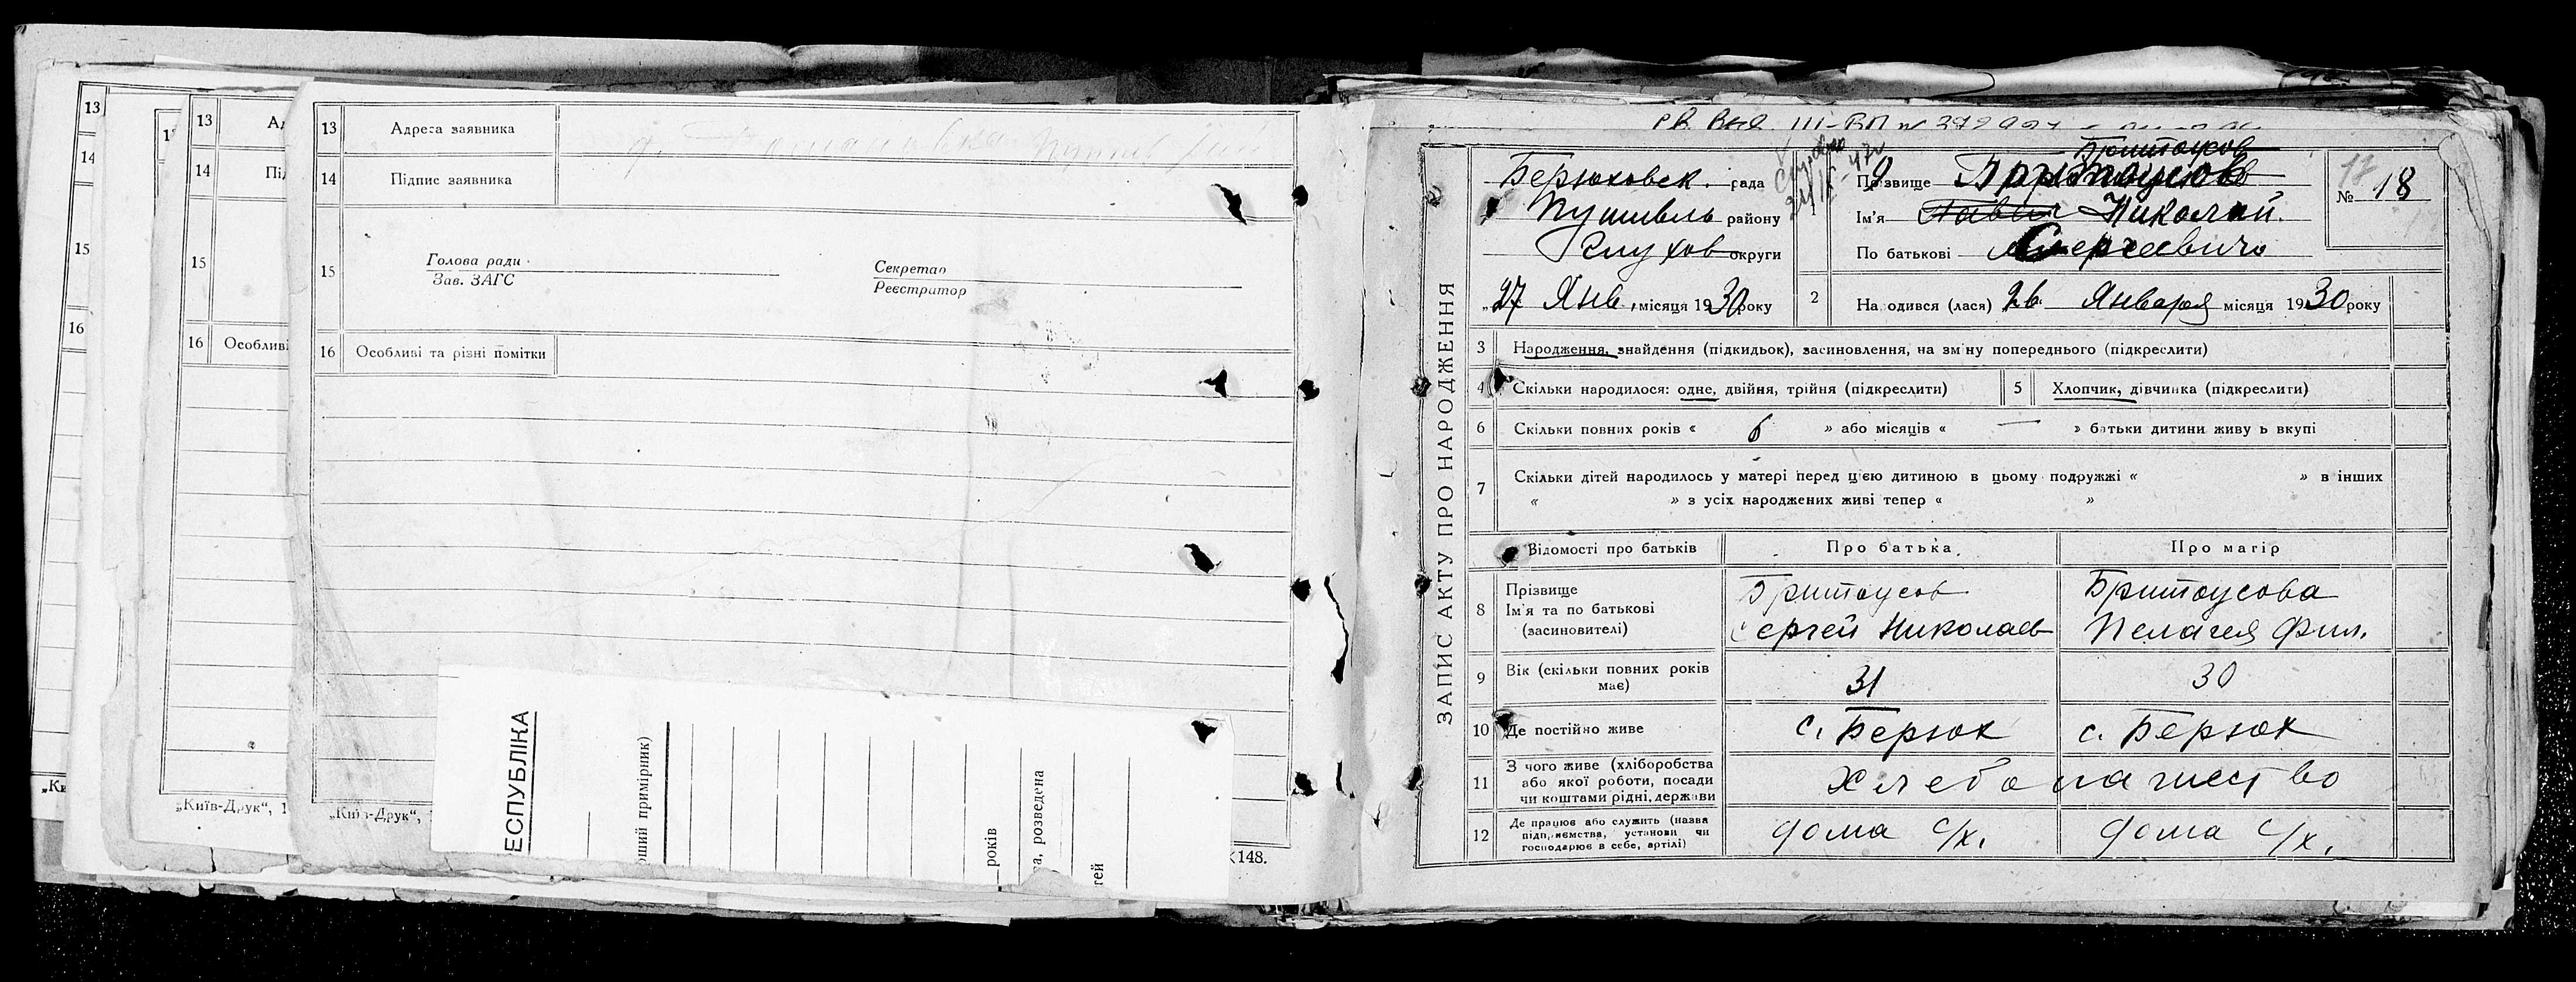 13
14
15
16
„Ки
13
14
15
16
Особливі
„Київ-Друк“, 1
13 Адреса заявника
14 Підпис заявника
15 Голова ради Секретар
Зав. ЗАГС Реєстратор
16 Особливі та різні помітки
„Київ-Друк“,
148.
ЕСПУБЛІКА
примірник)
років
розведена
Берюховск. рада
Путивль району
Глухов округи
„27 Янв., місяця 1930 року
ЗАПИС АКТУ ПРО НАРОДЖЕННЯ
Бритоусов
1 Прізвище Бритоусов
Ім'я Павел Николай.
По батькові Сергеевичъ
№ 18
17
2 На одився (лася) 26 Января місяця 1930 року
3 Народження, знайдення (підкидьок), засиновлення, на зміну попереднього (підкреслити)
4 Скільки народилося: одне, двійня, трійня (підкреслити) 5 Хлопчик, дівчинка (підкреслити)
6 Скільки повних років « 6 » або місяців « — » батьки дитини живуть вкупі
7 Скільки дітей народилось у матері перед цією дитиною в цьому подружжі « » в інших
« » з усіх народжених живі тепер « »
Відомості про батьків Про батька Про матір
8 Прізвище
Ім'я та по батькові
(засиновителі)
Бритоусов
Сергей Николаев
Бритоусова
Пелагея Фил.
9 Вік (скільки повних років має) 31 30
10 Де постійно живе с. Берюх с. Берюх
11 З чого живе (хліборобства
або якої роботи, посади
чи коштами рідні, держави
Хлебопашество
12 Де працює або служить (назва
підприємства, установи чи
господарює в себе, артілі)
дома с/х. дома с/х.